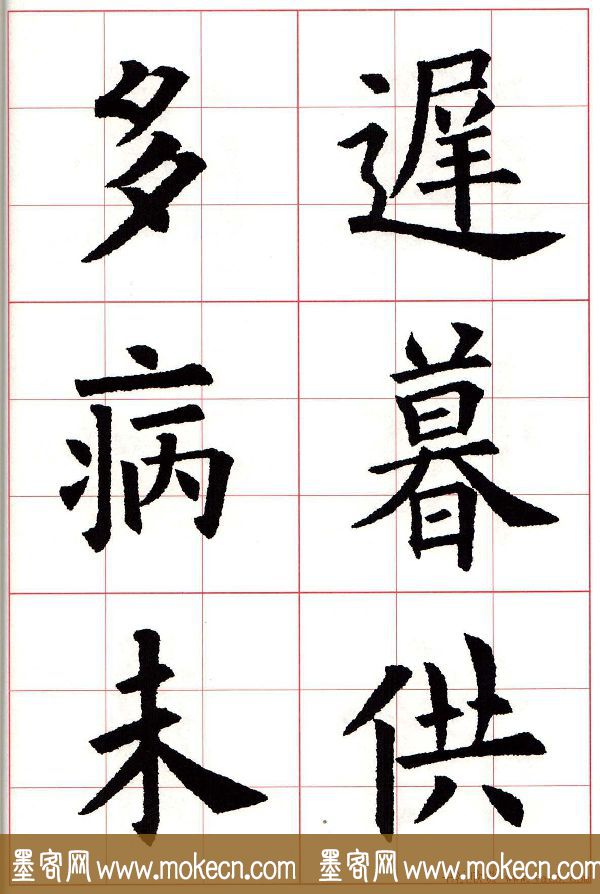 遲暮供
多病未
墨客网 www.mokecn.com 墨客网 www.mokecn.com